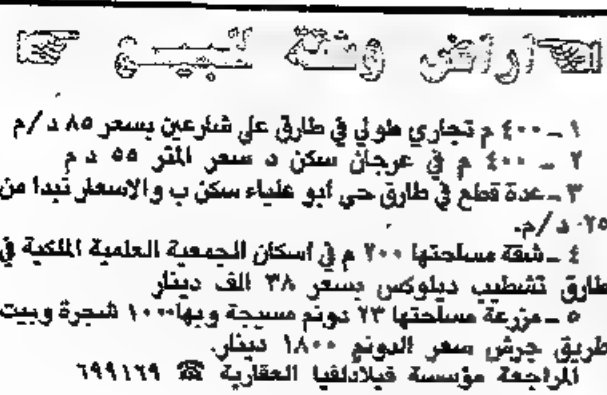 أراضي وشقة للبيع
١ ـ ٤٠٠ م تجاري طولي في طارق على شارعين بسعر ٨٥ د/م
٢ ـ ٤٠٠ م في عرجان سكن د سعر المتر ٥٥ د م
٣ ـ عدة قطع في طارق حي أبو علياء سكن ب والاسعار تبدا من
٢٥ د/م.
٤ ـ شقة مساحتها ٢٠٠ م في اسكان الجمعية العلمية الملكية في
طارق تشطيب ديلوكس بسعر ٣٨ الف دينار
٥ ـ مزرعة مساحتها ٢٣ دونم مسيجة وبها ١٠٠٠ شجرة وبيت
طريق جرش سعر الدونم ١٨٠٠ دينار.
المراجعة مؤسسة فيلادلفيا العقارية ☎ ٦٩٩١٦٩